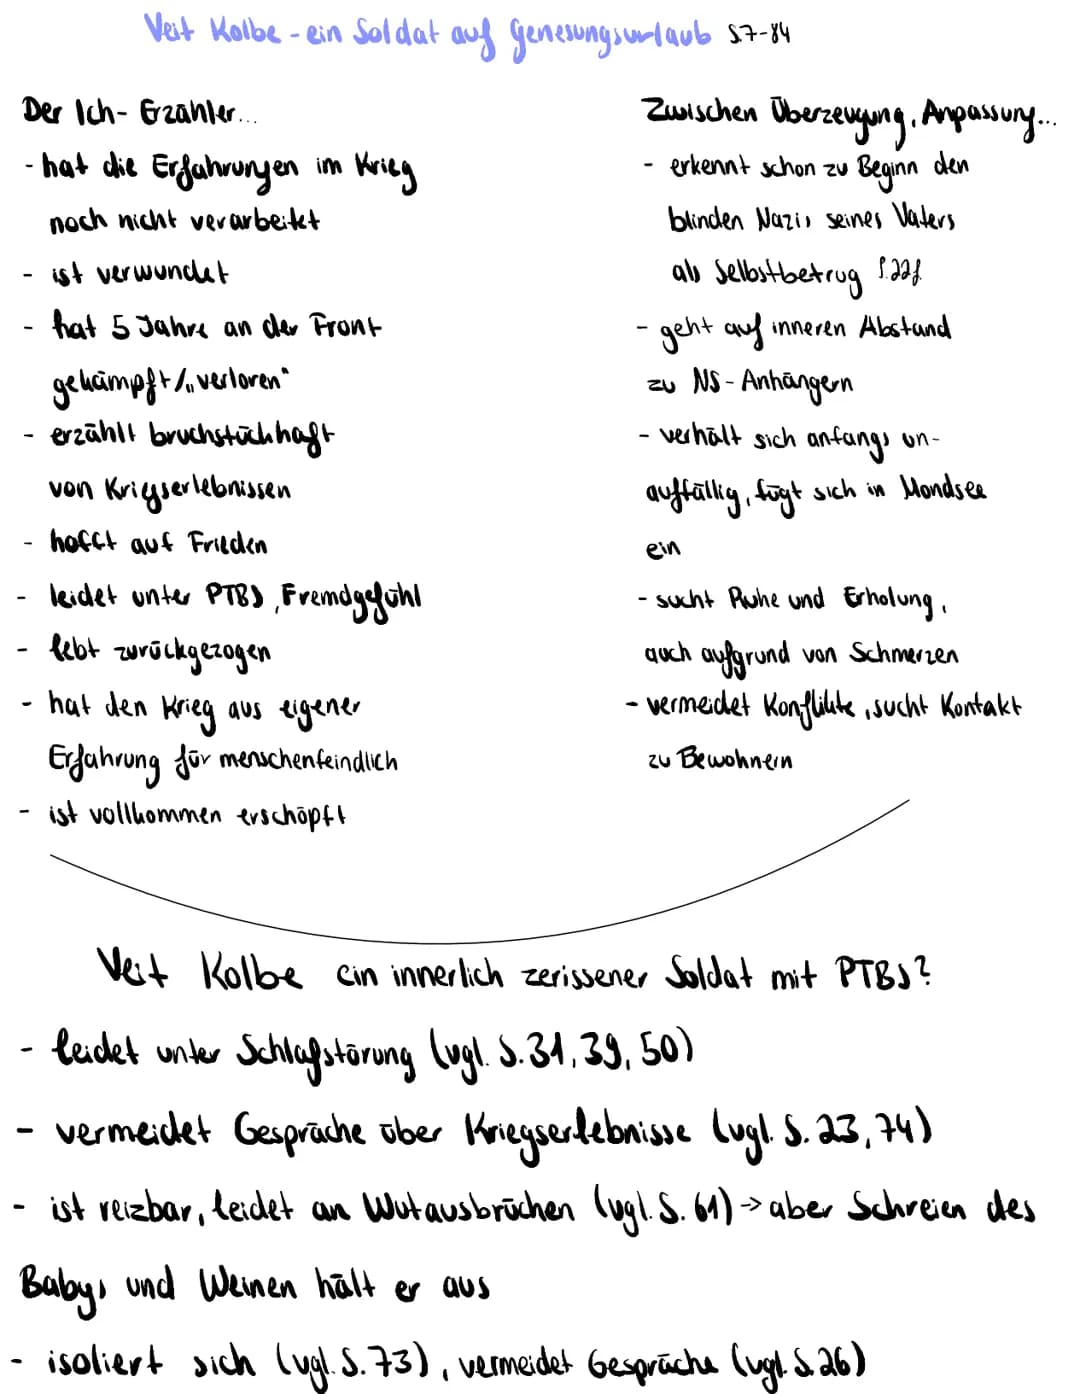 Veit Kolbe - ein Soldat auf Genesungsurlaub S.7-84
Der Ich-Erzähler...
- hat die Erfahrungen im Krieg
noch nicht verarbeitet
- ist verwundet
- hat 5 Jahre an der Front
gekämpft/„verloren"
- erzählt bruchstückhaft
von Kriegserlebnissen
- hofft auf Frieden
- leidet unter PTBS, Fremdgefühl
- lebt zurückgezogen
- hat den Krieg aus eigener
Erfahrung für menschenfeindlich
- ist vollkommen erschöpft
Zwischen Überzeugung, Anpassung...
- erkennt schon zu Beginn den
blinden Nazis seines Vaters
als Selbstbetrug S.22f.
- geht auf inneren Abstand
zu NS-Anhängern
- verhält sich anfangs un-
auffällig, fügt sich in Mondsee
ein
- sucht Ruhe und Erholung,
auch aufgrund von Schmerzen
- vermeidet Konflikte, sucht Kontakt
zu Bewohnern
Veit Kolbe ein innerlich zerissener Soldat mit PTBS?
- leidet unter Schlafstörung (vgl. S.31, 39, 50)
- vermeidet Gespräche über Kriegserlebnisse (vgl. S. 23, 74)
- ist reizbar, leidet an Wutausbrüchen (vgl. S. 61) → aber Schreien des
Babys und Weinen hält er aus
- isoliert sich (vgl. S. 73), vermeidet Gespräche (vgl. S. 26)